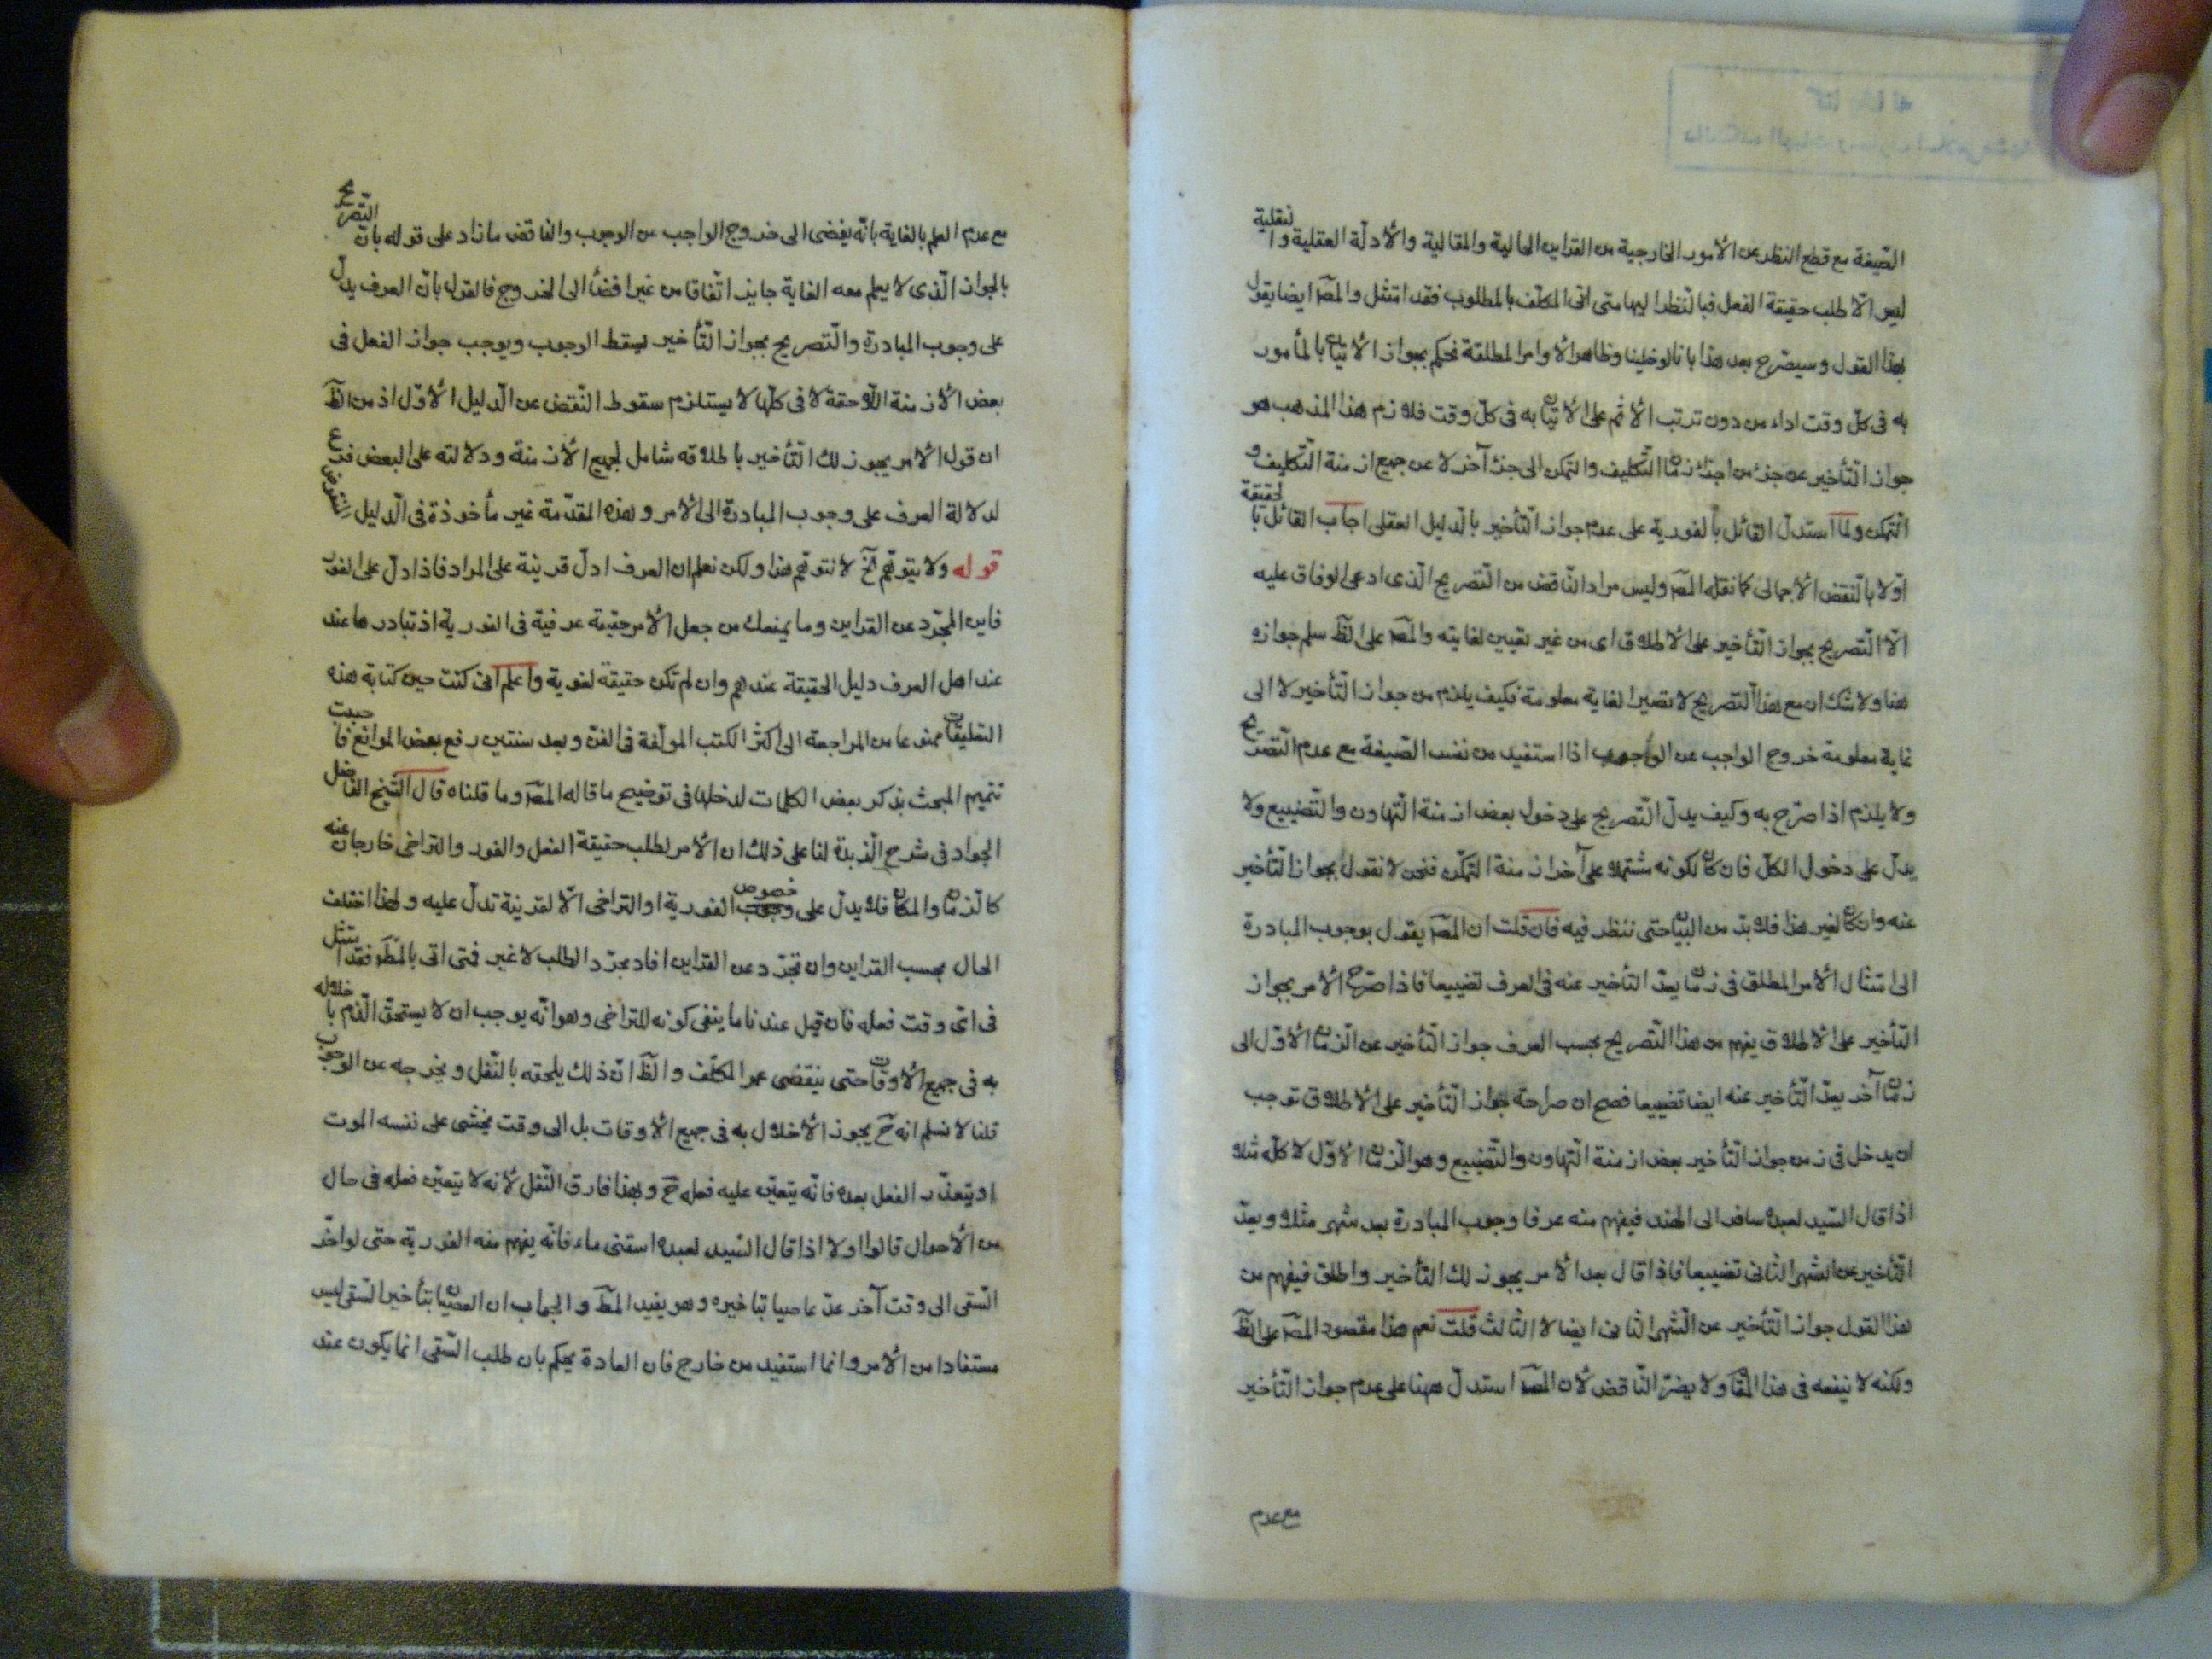 الصّيغة مع قطع النظر عن الأمور الخارجية من القراين الحالية والمقالية والأدلّة العقلية والنقلية
ليس الّا طلب حقيقة الفعل فبالنّظر اليها متى اتى المكلّف بالمطلوب فقد امتثل والمصّ ايضا يقول
بهذا القول وسيصّرح بعد هذا بانا لو خلينا وظاهر الأوامر المطلقة نحكم بجواز الأتيان بالمأمور
به فى كلّ وقت اداء من دون ترتب الأثم على الأتيان به فى كلّ وقت فلازم هذا المذهب هو
جواز التّأخير عن جزء من اجزاء زمان التّكليف والتمكن الى جزء آخر لا عن جميع ازمنة التّكليف و
التّمكن ولما استدلّ القائل بالفورية على عدم جواز التّأخير بالدّليل العقلى اجاب القائل بالحقيقة
اوّلا بالنّقض الأجمالى كما نقله المصّ وليس مراد النّاقض من التّصريح الّذى ادعى الوفاق عليه
الّا التّصريح بجواز التّأخير على الأطلاق اى من غير تعيين لغايته والمصّ على الظّ سلم جوازه
هنا ولا شك ان مع هذا التّصريح لا تصير الغاية معلومة فكيف يلزم من جواز التّأخير لا الى
غاية معلومة خروج الواجب عن الواجوب اذا استفيد من نفس الصّيغة مع عدم التّصريح
ولا يلزم اذا صّرح به وكيف يدلّ التّصريح على دخول بعض ازمنة التّهاون والتّضييع ولا
يدلّ على دخول الكلّ فان كان لكونه مشتملا على آخر ازمنة التمكّن فنحن لا نقول بجواز التّأخير
عنه وان كان لغير هذا فلا بدّ من البيان حتى ننظر فيه فان قلت ان المصّ يقول بوجوب المبادرة
الى امتثال الأمر المطلق فى زمان يعدّ التأخير عنه فى العرف تضييعا فاذا صّرح الأمر بجواز
التّأخير على الأطلاق يفهم من هذا التّصريح بحسب العرف جواز التّأخير عن الّزمان الأوّل الى
زمان آخر يعدّ التّأخير عنه ايضا تضييعا فصح ان صراحة جواز التّأخير على الأطلاق توجب
ان يدخل فى زمن جواز التّأخير بعض ازمنة التّهاون والتّضييع وهو الّزمان الأوّل لا كلّه مثلا
اذا قال السّيد لعبده سافر الى الهند فيفهم منه عرفا وجوب المبادرة بعد شهر مثلا ويعدّ
التّأخير عن الشهر الثانى تضييعا فاذا قال بعد الأمر يجوز لك التّأخير واطلق فيفهم من
هذا القول جواز التّأخير عن الّشهر الثانى ايضا لا الثّالث قلت نعم هذا مقصود المصّ على الظّ
ولكنه لا ينفعه فى هذا المقام ولا يضرّ النّاقض لأن المصّ استدلّ ههنا على عدم جواز التّأخير
مع عدم
مع عدم العلم بالغاية بانّه يفضى الى خروج الواجب عن الوجوب والناقض ما زاد على قوله بان التّصريح
بالجواز الّذى لا يعلم معه الغاية جايز اتّفاقا من غير افضاء الى الخروج فالقول بانّ العرف يدلّ
على وجوب المبادرة والتّصريح بجواز التّأخير يسقط الوجوب ويوجب جواز الفعل فى
بعض الأزمنة اللّاحقة لا فى كلّها لا يستلزم سقوط النّقض عن الّدليل الأوّل اذ من الظّ
ان قول الأمر يجوز لك التّأخير باطلاقه شامل لجميع الأزمنة ودلالته على البعض فرع
لدلالة العرف على وجوب المبادرة الى الأمر وهذه المقدّمة غير مأخوذة فى الّدليل المنقوض
قوله ولا يتوهّم آلخ لا نتوهّم هذا ولكن نعلم ان العرف ادلّ قرينة على المراد فاذا دلّ على الفور
فاين المجّرد عن القراين وما يمنعك من جعل الأمر حقيقة عرفية فى الفورية اذ تبادرها عند
عند اهل العرف دليل الحقيقة عندهم وان لم تكن حقيقة لغوية واعلم انّى كنت حين كتابة هذه
التعليقات ممنوعا من المراجعة الى اكثر الكتب المؤلّفة فى الفنّ وبعد سنتين رفع بعض الموانع فاحببت
تتميم المبحث بذكر بعض الكلمات لدخلها فى توضيح ما قاله المصّ وما قلناه قال الشّيخ الفاضل
الجواد فى شرح الّزبدة لنا على ذلك ان الأمر لطلب حقيقة الفعل والفور والتراخى خارجان عنه
كالّزمان والمكان فلا يدلّ على وجوب خصوص الفورية او التراخى الّا لقرينة تدلّ عليه ولهذا اختلف
الحال بحسب القراين وان تجّرد عن القراين افاد مجرّد الطلب لا غير فمتى اتى بالمطّ فقد امتثل
فى اىّ وقت فعله فان قيل عندنا ما ينفى كونه للتراخى وهو انّه يوجب ان لا يستحقّ الّذم باخلاله
به فى جميع الأوقات حتى ينقضى عمر المكلّف والظّ انّ ذلك يلحقه بالنّفل ويخرجه عن الوجوب
قلنا لا نسلم انه حّ يجوز الأخلال به فى جميع الأوقات بل الى وقت يخشى على نفسه الموت
او يتعذّر الفعل بعده فانّه يتعيّن عليه فعله حّ وبهذا فارق النّفل لأنه لا يتعيّن فعله فى حال
من الأحوال قالوا اولا اذا قال السّيد لعبده اسقنى ماء فانّه يفهم منه الفورية حتى لو اخّر
السّقى الى وقت آخر عدّ عاصيا بتاخيره وهو يفيد المطّ والجواب ان العصيان بتأخير السّقى ليس
مستفادا من الأمر وانما استفيد من خارج فان العادة يحكم بان طلب السّقى انما يكون عند